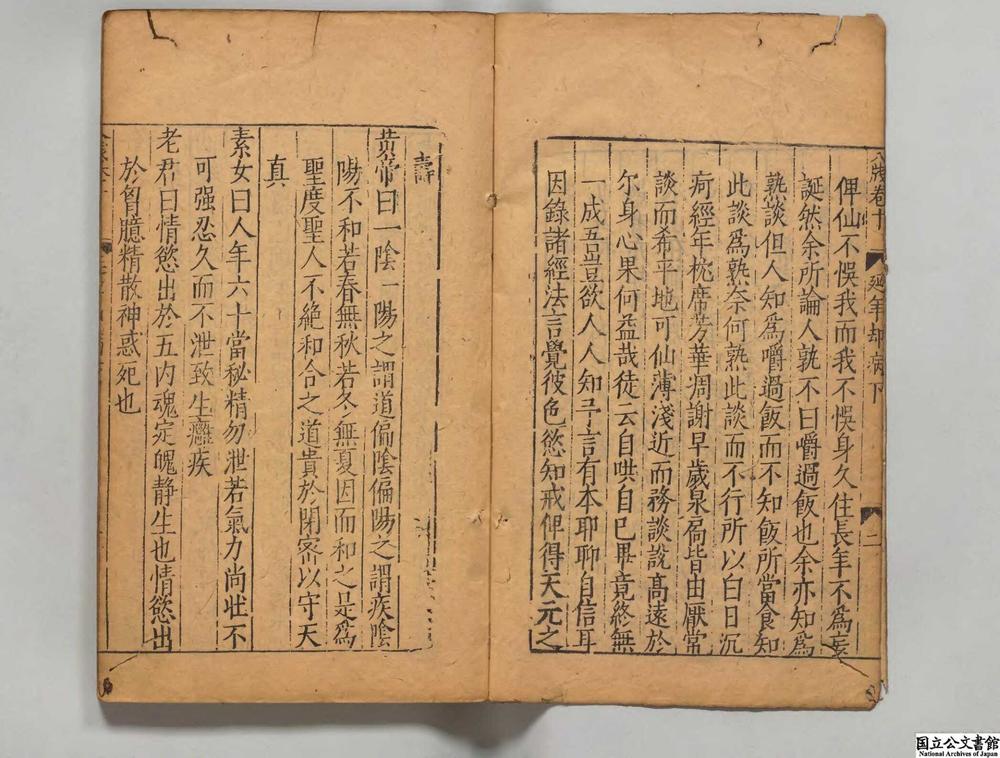 俾仙不悞我而我不悞身久住長年不為妄
誕然余所論人孰不曰嚼過飯也余亦知為
熟談但人知為嚼過飯而不知飯所當食知
此談為熟奈何熟此談而不行所以白日沉
疴經年枕席芳華凋謝早歲泉扃皆由厭常
談而希平地可仙薄淺近而務談說高遠於
尔身心果何益哉徒云自哄自己畢竟終無
一成吾豈欲人人知予言有本聊聊自信耳
因錄諸經法言覺彼色慾知戒俾得天元之
壽
黄帝曰一陰一陽之謂道偏陰偏陽之謂疾陰
陽不和若春無秋若冬無夏因而和之是為
聖度聖人不絕和合之道貴於閉密以守天
真
素女曰人年六十當秘精勿泄若氣力尚壯不
可强忍久而不泄致生癰疾
老君曰情慾出於五內魂定魄静生也情慾出
於胷臆精散神惑死也
牋卷十
延年却病下
二
国立公文書館
National Archives of Japan